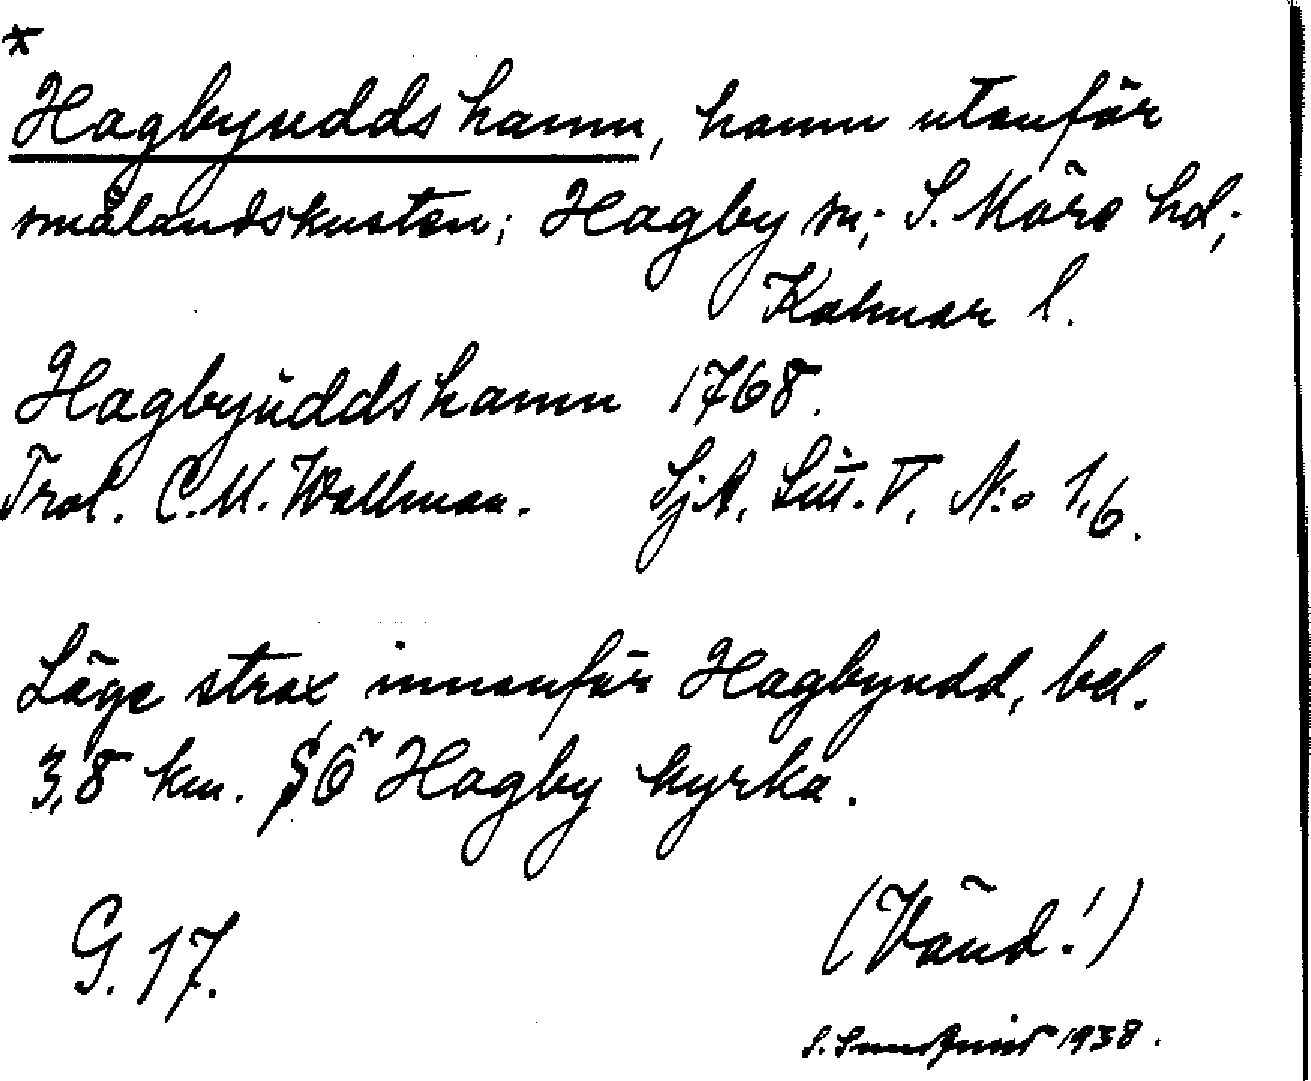 *
Hagbyuddshamn, hamn utanför
smålandskusten; Hagby sn; S. Möre hd;
Kalmar l.
Hagbyuddshamn 1768.
Prol. C.M. Wallman. SjA. Litt. V. N:o 1,6.
Läge strax innanför Hagbyudd, bel.
3,8 km. SÖ Hagby kyrka.
G. 17.
(Vänd!)
S. Sundqvist 1938.